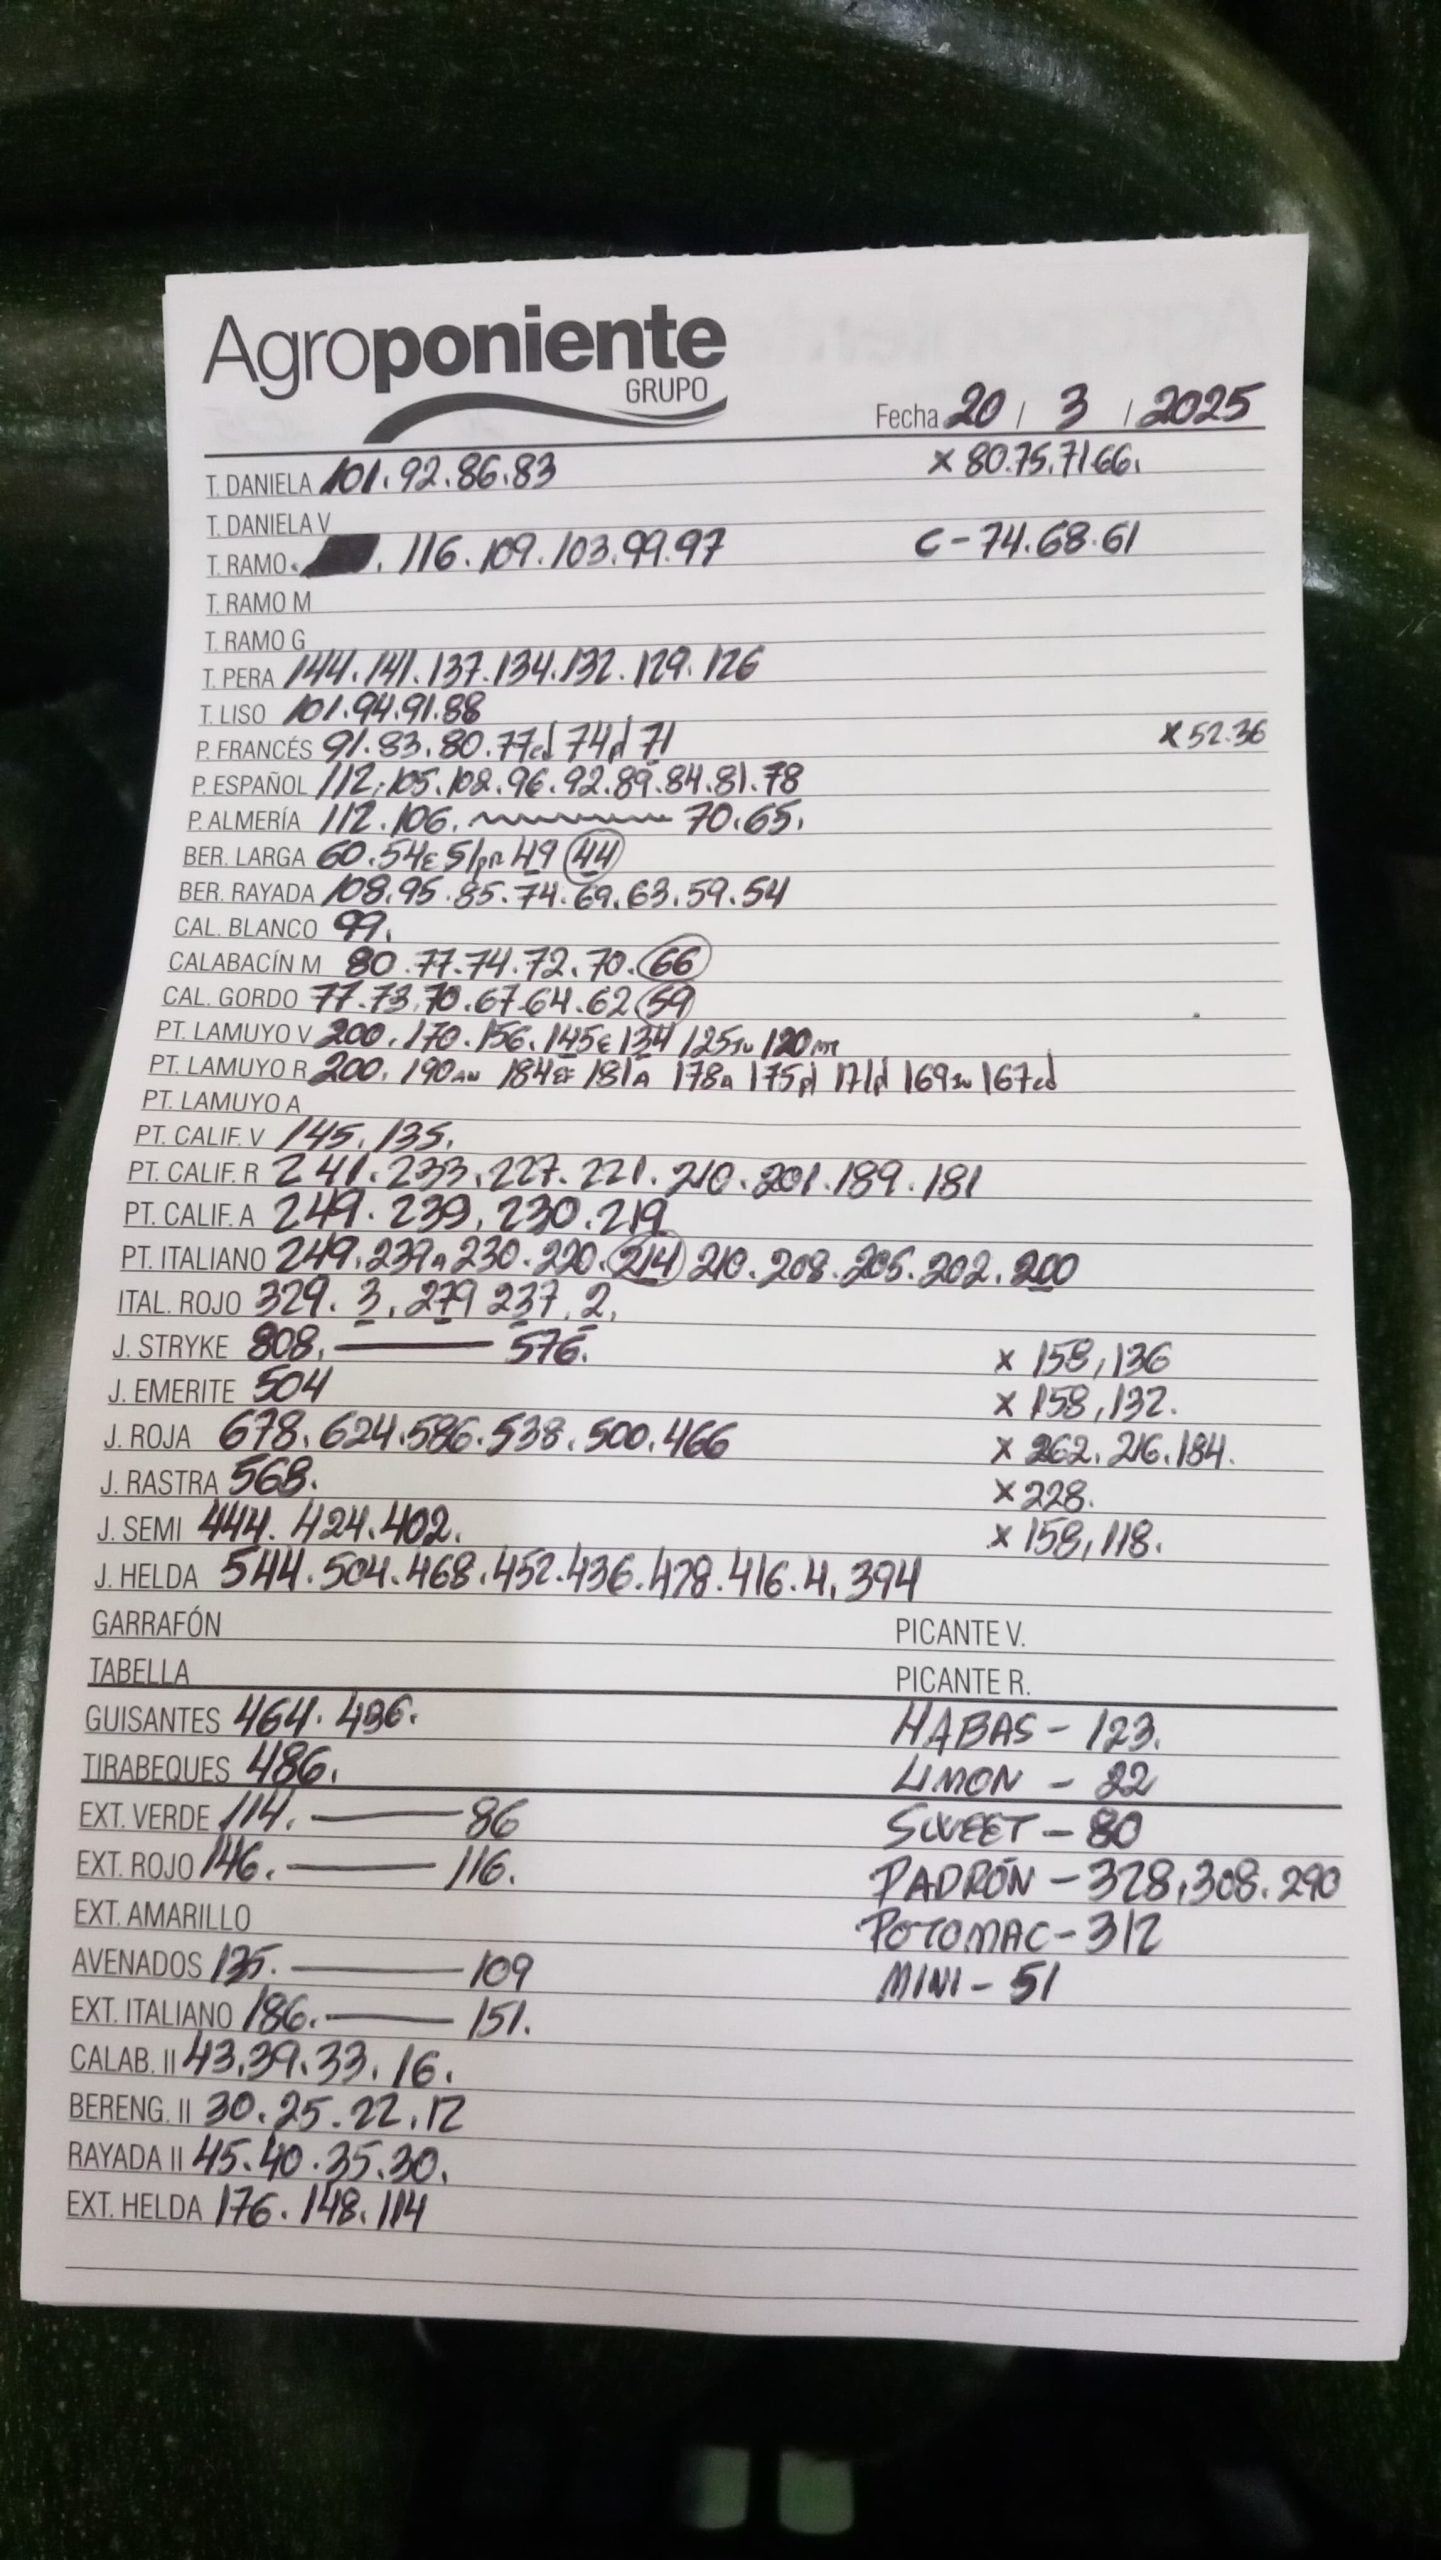 Agroponiente
GRUPO
Fecha 20 / 3 / 2025
T. DANIELA 101.92.86.83 x 80.75.71.66.
T. DANIELA V
T. RAMO . 116.109.103.99.97 C-74.68.61
T. RAMO M
T. RAMO G
T. PERA 144.141.137.134.132.129.126
T. LISO 101.94.91.88
P. FRANCÉS 91.83.80.77cd 74pl 71 x 52.36
P. ESPAÑOL 112.105.102.96.92.89.84.81.78
P. ALMERÍA 112.106. 70.65.
BER. LARGA 60.54E 51pr 49 44
BER. RAYADA 108.95.85.74.69.63.59.54
CAL. BLANCO 99.
CALABACÍN M 80.77.74.72.70.66
CAL. GORDO 77.73.70.67.64.62 59
PT. LAMUYO V 200.170.156.145E 134 125 120
PT. LAMUYO R 200.190 184 181A 178A 175pl 171pl 169 167cd
PT. LAMUYO A
PT. CALIF. V 145.135.
PT. CALIF. R 241.233.227.221.210.201.189.181
PT. CALIF. A 249.239.230.219
PT. ITALIANO 249.237A 230.220.214 210.208.205.202.200
ITAL. ROJO 329.3.279 237.2.
J. STRYKE 808. — 576. x 158,136
J. EMERITE 504 x 158,132.
J. ROJA 678.624.586.538.500.466 x 262.216.184.
J. RASTRA 568. x 228.
J. SEMI 444.424.402. x 158,118.
J. HELDA 544.504.468.452.436.428.416.4.394
GARRAFÓN PICANTE V.
TABELLA PICANTE R.
GUISANTES 464.436. HABAS - 123.
TIRABEQUES 486. LIMON - 22
EXT. VERDE 114. — 86 SWEET - 80
EXT. ROJO 146. — 116. PADRÓN - 328,308.290
EXT. AMARILLO POTOMAC - 312
AVENADOS 135. — 109 MINI - 51
EXT. ITALIANO 186. — 151.
CALAB. II 43.39.33.16.
BERENG. II 30.25.22.12
RAYADA II 45.40.35.30.
EXT. HELDA 176.148.114